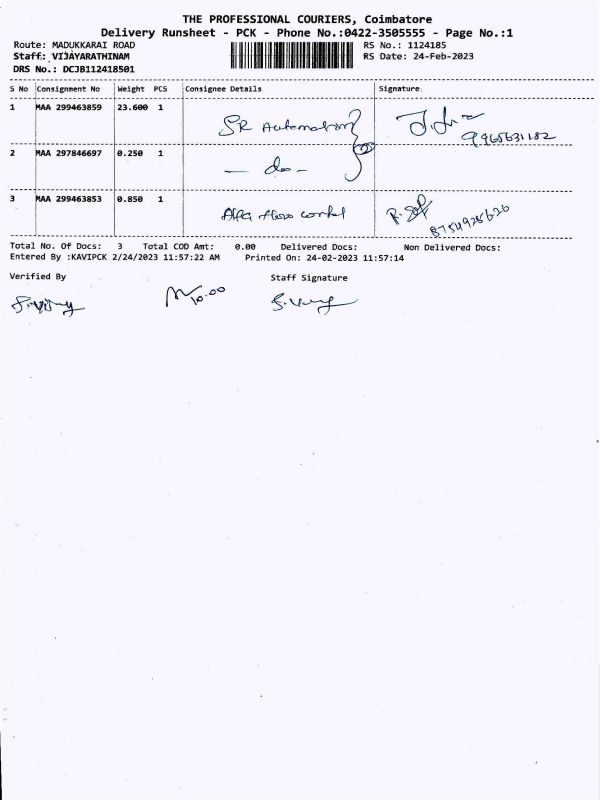 THE PROFESSIONAL COURIERS, Coimbatore
Delivery Runsheet - PCK - Phone No.:0422-3505555 - Page No.:1
Route: MADUKKARAI ROAD
RS No.: 1124185
Staff.: VIJAYARATHINAM
RS Date: 24-Feb-2023
DRS No.: DCJB112418501
S No Consignment No Weight PCS Consignee Details Signature
1 MAA 299463859 23.600 1 SR Automation
9965631182
2 MAA 297846697 0.250 1 - do -
3 MAA 299463853 0.850 1 control
8754925620
Total No. Of Docs: 3 Total COD Amt: 0.00 Delivered Docs: Non Delivered Docs:
Entered By :KAVIPCK 2/24/2023 11:57:22 AM Printed On: 24-02-2023 11:57:14
Verified By Staff Signature
10.00